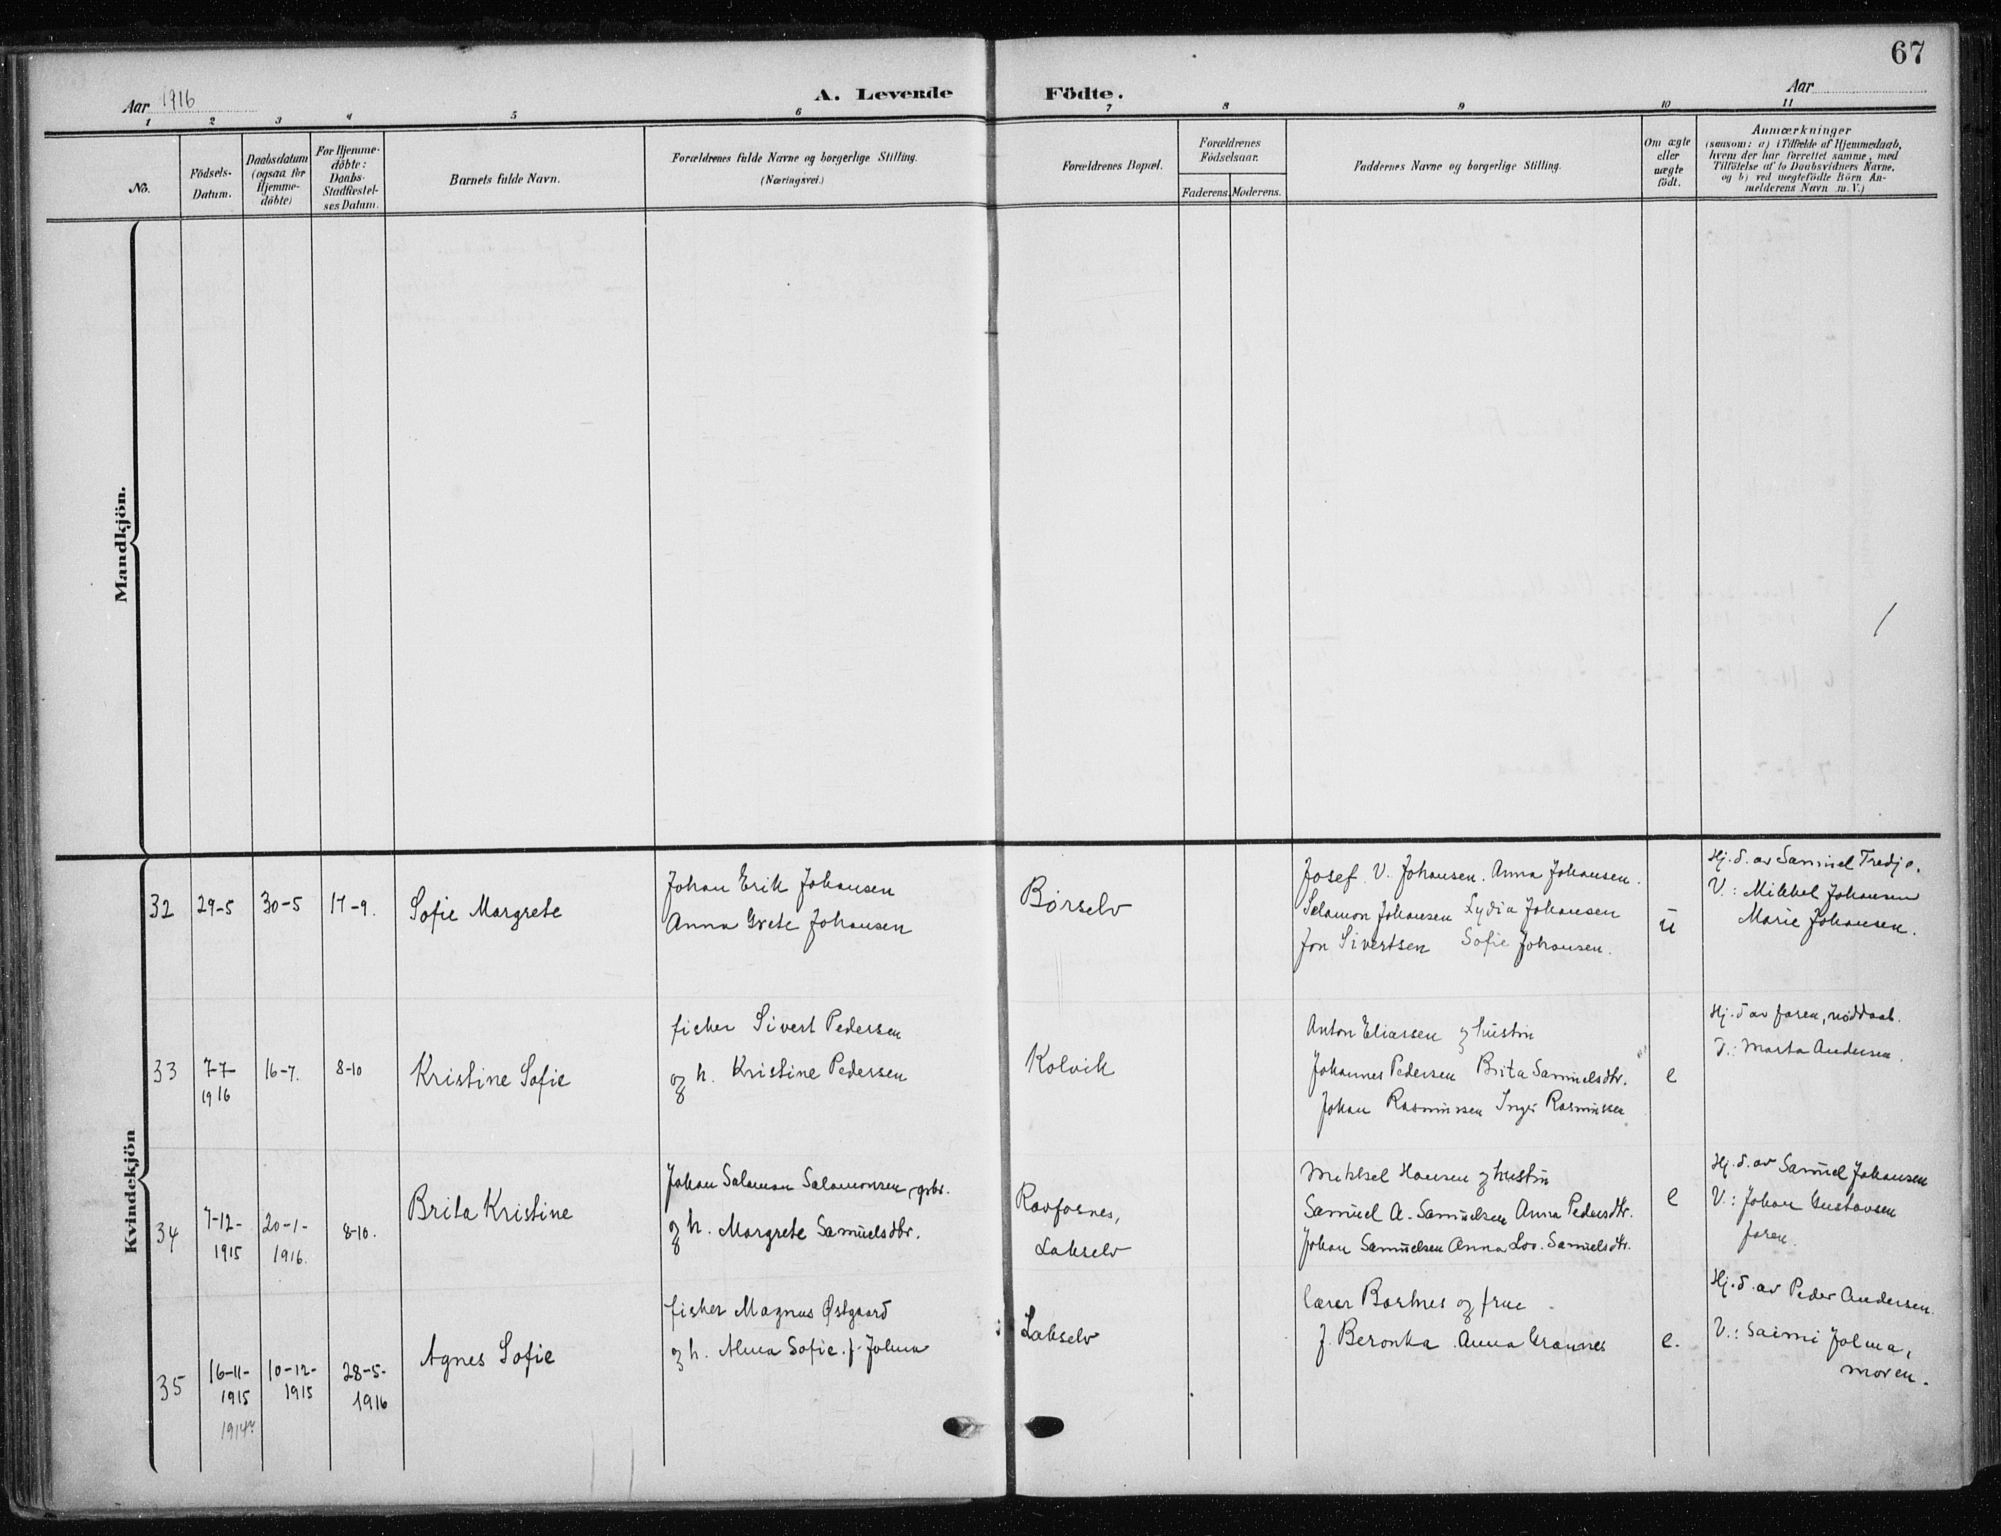 67
Aar 1916
A. Levende Födte.
Aar
1 2 3 4 5 6 7 8 9 10 11
No.
Födsels-
Datum.
Daabsdatum
(ogsaa for
Hjemme-
döbte)
For Hjemme-
döbte:
Daabs-
Stadfæstel-
ses Datum.
Barnets fulde Navn.
Forældrenes fulde Navne og borgerlige Stilling.
(Næringsvei.)
Forældrenes Bopæl.
Forældrenes
Födselsaar.
Faderens. Moderens.
Faddernes Navne og borgerlige Stilling.
Om ægte
eller
uægte
födt.
Anmærkninger
(saasom: a) i Tilfælde af Hjemmedaab,
hvem der har forrettet samme, med
Tilföielse af to Daabsvidners Navne,
og b) ved uægtefödte Börn An-
melderens Navn m. V.)
Mandkjön.
Kvindekjön
32 29-5 30-5 17-9. Sofie Margrete
Johan Erik Johansen
Anna Grete Johansen
Børselv
Josef V. Johansen. Anna Johansen.
Salamon Johansen Lydia Johansen
Jon Sivertsen Sofie Johansen.
u
Hj. d. av Samuel Tredje.
V: Mikkel Johansen
Marie Johansen.
33 7-7-
1916
16-7. 8-10 Kristine Sofie
fisker Sivert Pedersen
og h. Kristine Pedersen
Kolvik
Anton Eliassen og hustru
Johannes Pedersen Brita Samuelsdtr.
Johan Rasmussen Inger Rasmussen
e
Hj. d av faren, nøddaab.
V: Marta Andersen.
34 7-12-
1915
20-1-
1916.
8-10. Brita Kristine
Johan Salamon Salamonsen, gbr.
og h. Margrete Samuelsdtr.
Lakselv
Mikkel Hansen og hustru
Samuel A. Samuelsen Anna Pedersdtr.
Johan Samuelsen Anna Lov. Samuelsdtr.
e
Hj. d. av Samuel Johansen
V: Johan Gustavsen
faren.
35 16-11-
1915
1914?
10-12-
1915
28-5-
1916
Agnes Sofie
fisker Magnus Østgaard
og h. Alma Sofie f. Jolma
Lakselv
lærer Bastnes og frue
J. Beronka Anna Grannes
e.
Hj. d. av Peder Andersen.
V: Saimi Jolma,
moren.